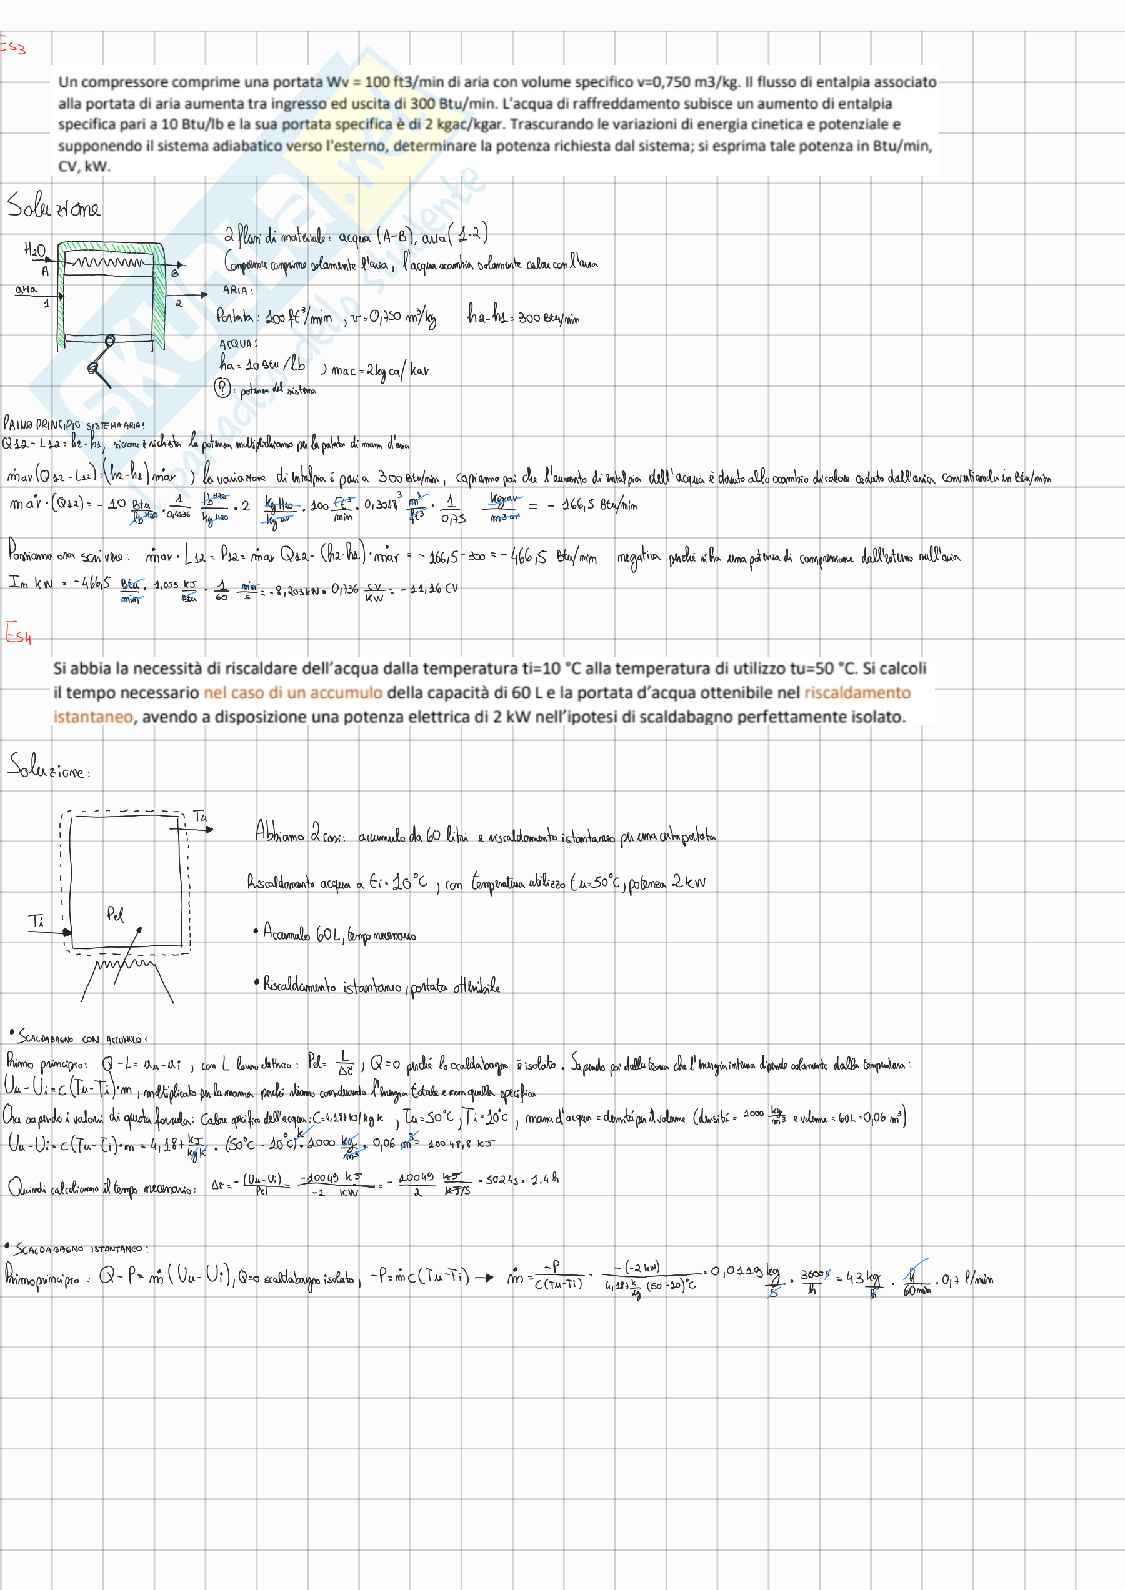 Es3
Un compressore comprime una portata Wv = 100 ft3/min di aria con volume specifico v=0,750 m3/kg. Il flusso di entalpia associato
alla portata di aria aumenta tra ingresso ed uscita di 300 Btu/min. L'acqua di raffreddamento subisce un aumento di entalpia
specifica pari a 10 Btu/lb e la sua portata specifica è di 2 kgac/kgar. Trascurando le variazioni di energia cinetica e potenziale e
supponendo il sistema adiabatico verso l'esterno, determinare la potenza richiesta dal sistema; si esprima tale potenza in Btu/min,
CV, kW.
Soluzione
H2O
A
B
aria
1
2
2 flussi di materiale: acqua (A-B), aria (1-2)
Compressore comprime solamente l'aria, l'acqua scambia solamente calore con l'aria
ARIA:
Portata: 100 ft³/min , v=0,750 m³/kg h2-h1=300 Btu/min
ACQUA:
ha=10 Btu/lb ; mac=2kg ca/kar
?: potenza del sistema
PRIMO PRINCIPIO SISTEMA ARIA:
Q12-L12=h2-h1, siccome è richiesta la potenza moltiplichiamo per la portata di massa d'aria
ṁar(Q12-L12)=(h2-h1)ṁar ) la variazione di entalpia è pari a 300 Btu/min, capiamo poi che l'aumento di entalpia dell'acqua è dovuto allo scambio di calore ceduto dall'aria, convertiamolo in Btu/min
ṁar·(Q12)= -10 Btu/lbH2O · 1/0,4536 lbH2O/kgH2O · 2 kgH2O/kgar · 100 ft³/min · 0,3048³ m³/ft³ · 1/0,75 kgar/m³ar = -166,5 Btu/min
Possiamo ora scrivere: ṁar·L12=P12=ṁar Q12-(h2-h1)·ṁar = -166,5-300=-466,5 Btu/min negativa perché si ha una potenza di compressione dall'esterno sull'aria
In kW = -466,5 Btu/min · 1,055 kJ/Btu · 1/60 min/s = -8,203kW · 0,736 CV/kW = -11,16 CV
Es4
Si abbia la necessità di riscaldare dell'acqua dalla temperatura ti=10 °C alla temperatura di utilizzo tu=50 °C. Si calcoli
il tempo necessario nel caso di un accumulo della capacità di 60 L e la portata d'acqua ottenibile nel riscaldamento
istantaneo, avendo a disposizione una potenza elettrica di 2 kW nell'ipotesi di scaldabagno perfettamente isolato.
Soluzione:
Tu
Pel
Ti
Abbiamo 2 casi: accumulo da 60 litri e riscaldamento istantaneo per una certa portata
Riscaldamento acqua a ti=10°C, con temperatura utilizzo tu=50°C, potenza 2kW
• Accumulo 60L, tempo necessario
• Riscaldamento istantaneo, portata ottenibile
• SCALDABAGNO CON ACCUMULO:
Primo principio: Q-L=uu-ui , con L lavoro elettrico: Pel= L/Δτ ; Q=0 perché lo scaldabagno è isolato. Sapendo poi dalla teoria che l'energia interna dipende solamente dalla temperatura:
Uu-Ui=c(Tu-Ti)·m, moltiplicato per la massa perché stiamo considerando l'energia totale e non quella specifica
Ora sapendo i valori di questa formula: Calore specifico dell'acqua: C=4,187 kJ/kg K , Tu=50°C, Ti=10°C , massa d'acqua = densità per il volume (densità = 1000 kg/m³ e volume = 60L=0,06 m³)
Uu-Ui=c(Tu-Ti)·m=4,187 kJ/kgK · (50°C-10°C) · 1000 kg/m³ · 0,06 m³= 10048,8 kJ
Quindi calcoliamo il tempo necessario: Δτ=-(Uu-Ui)/Pel -10049 kJ/-2 kW = -10049/2 kJ/kJ/s = 5024s = 1.4h
• SCALDABAGNO ISTANTANEO:
Primo principio: Q-P=ṁ(Uu-Ui), Q=0 scaldabagno isolato, -P=ṁc(Tu-Ti) → ṁ= -P/C(Tu-Ti) · -(-2kW)/4,187 (50-10)°C = 0,0119 kg/s · 3600 s/h = 43 kg/h · h/60min · 0,7 l/min